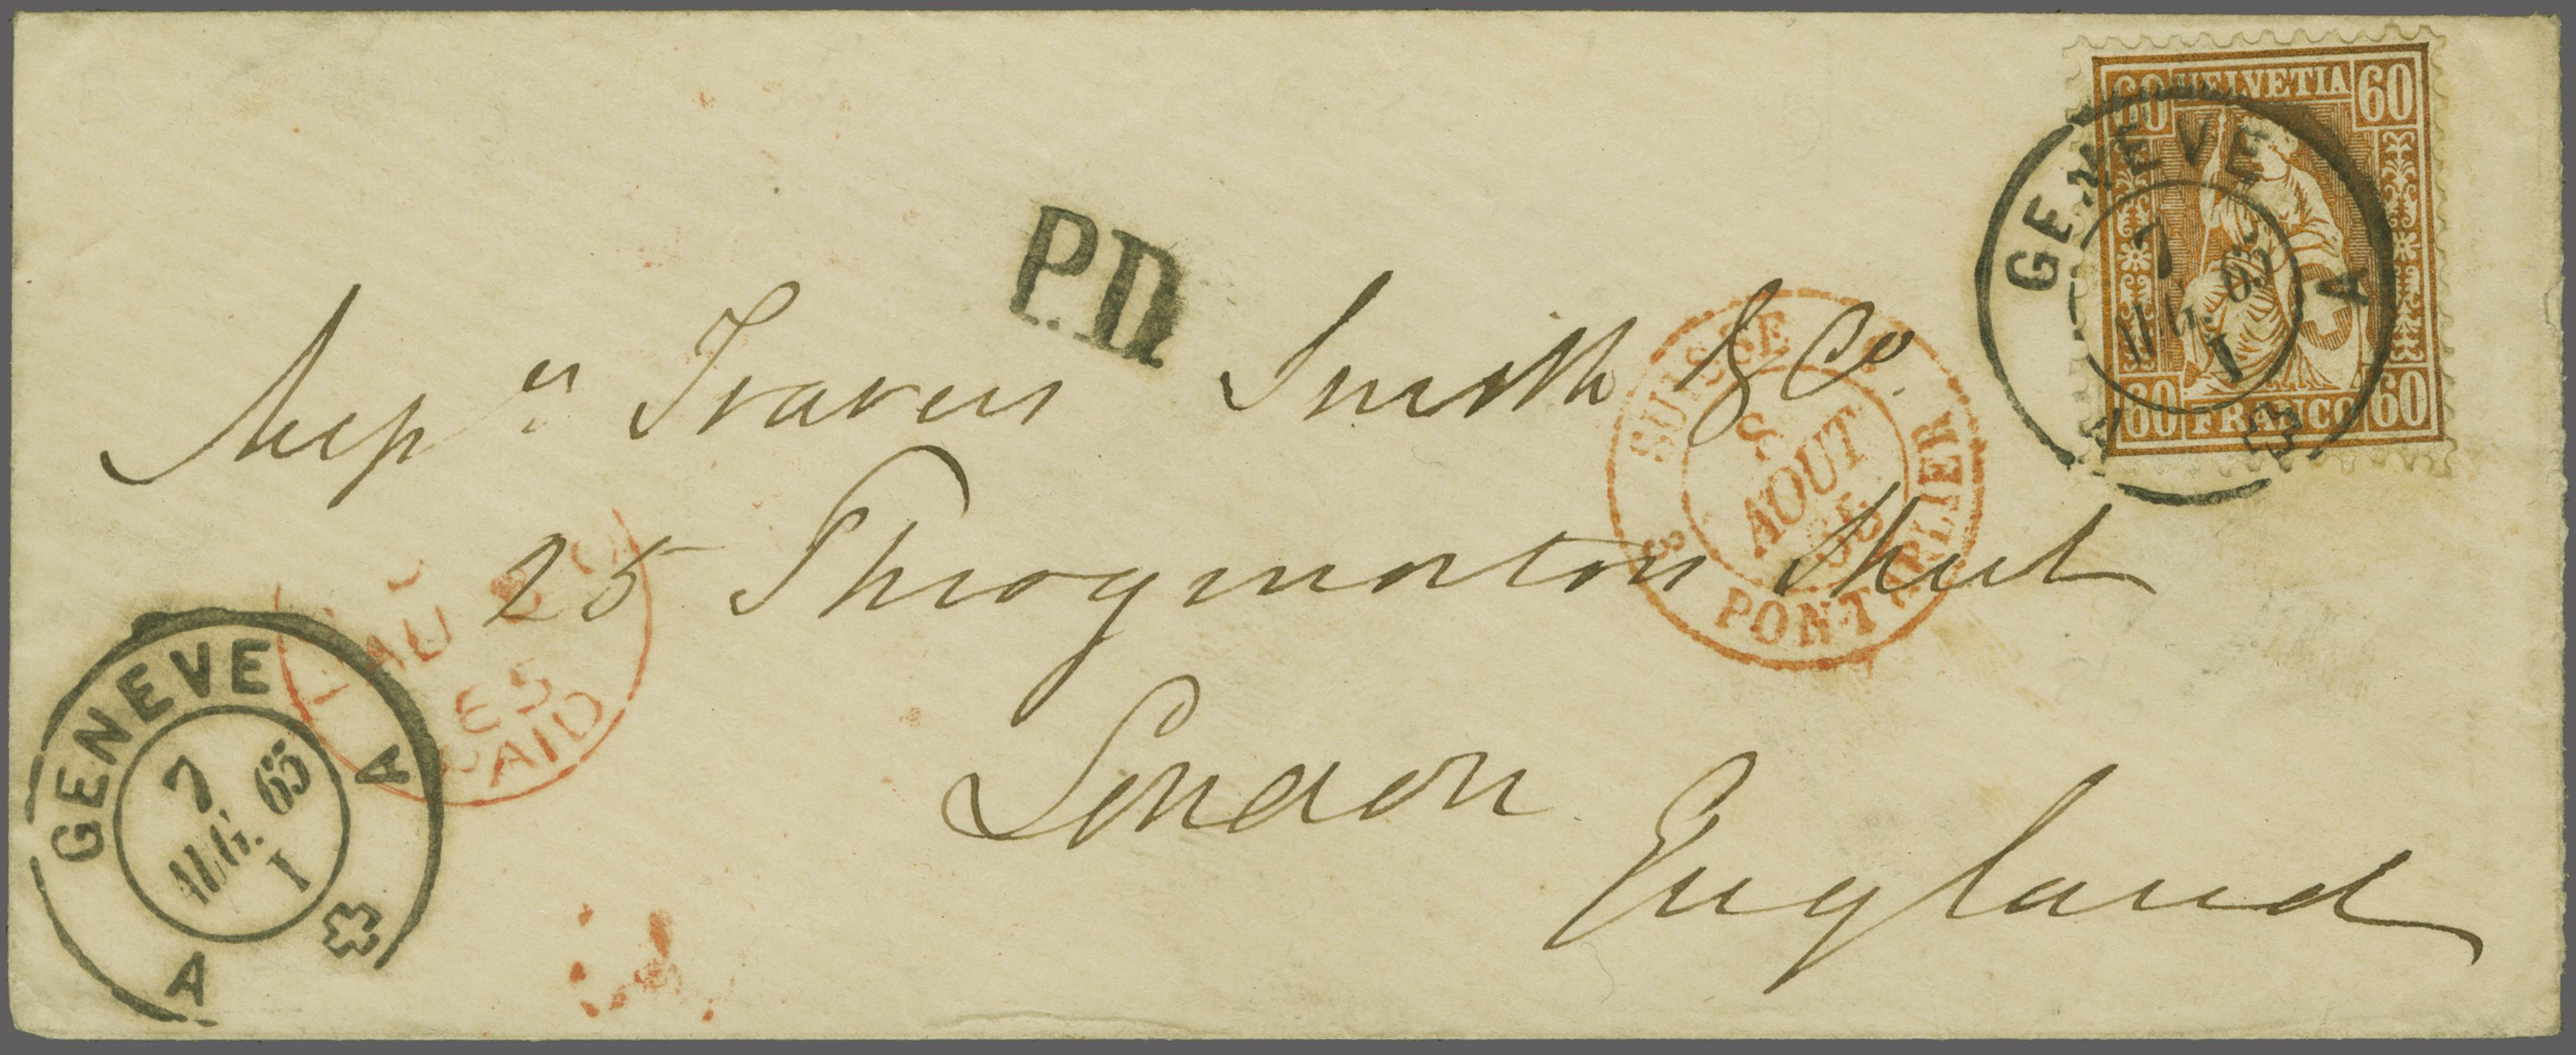 60 HELVETIA 60
60 FRANCO 60
GENEVE
7
AUG. 65
I
A
A
P.D.
Mess^rs Travers Smith & Co.
25 Throgmorton Street
London
England
SUISSE
3
8
AOUT
65
PONTARLIER
3
AU
65
PAID
GENEVE
7
AUG. 65
I
A
A